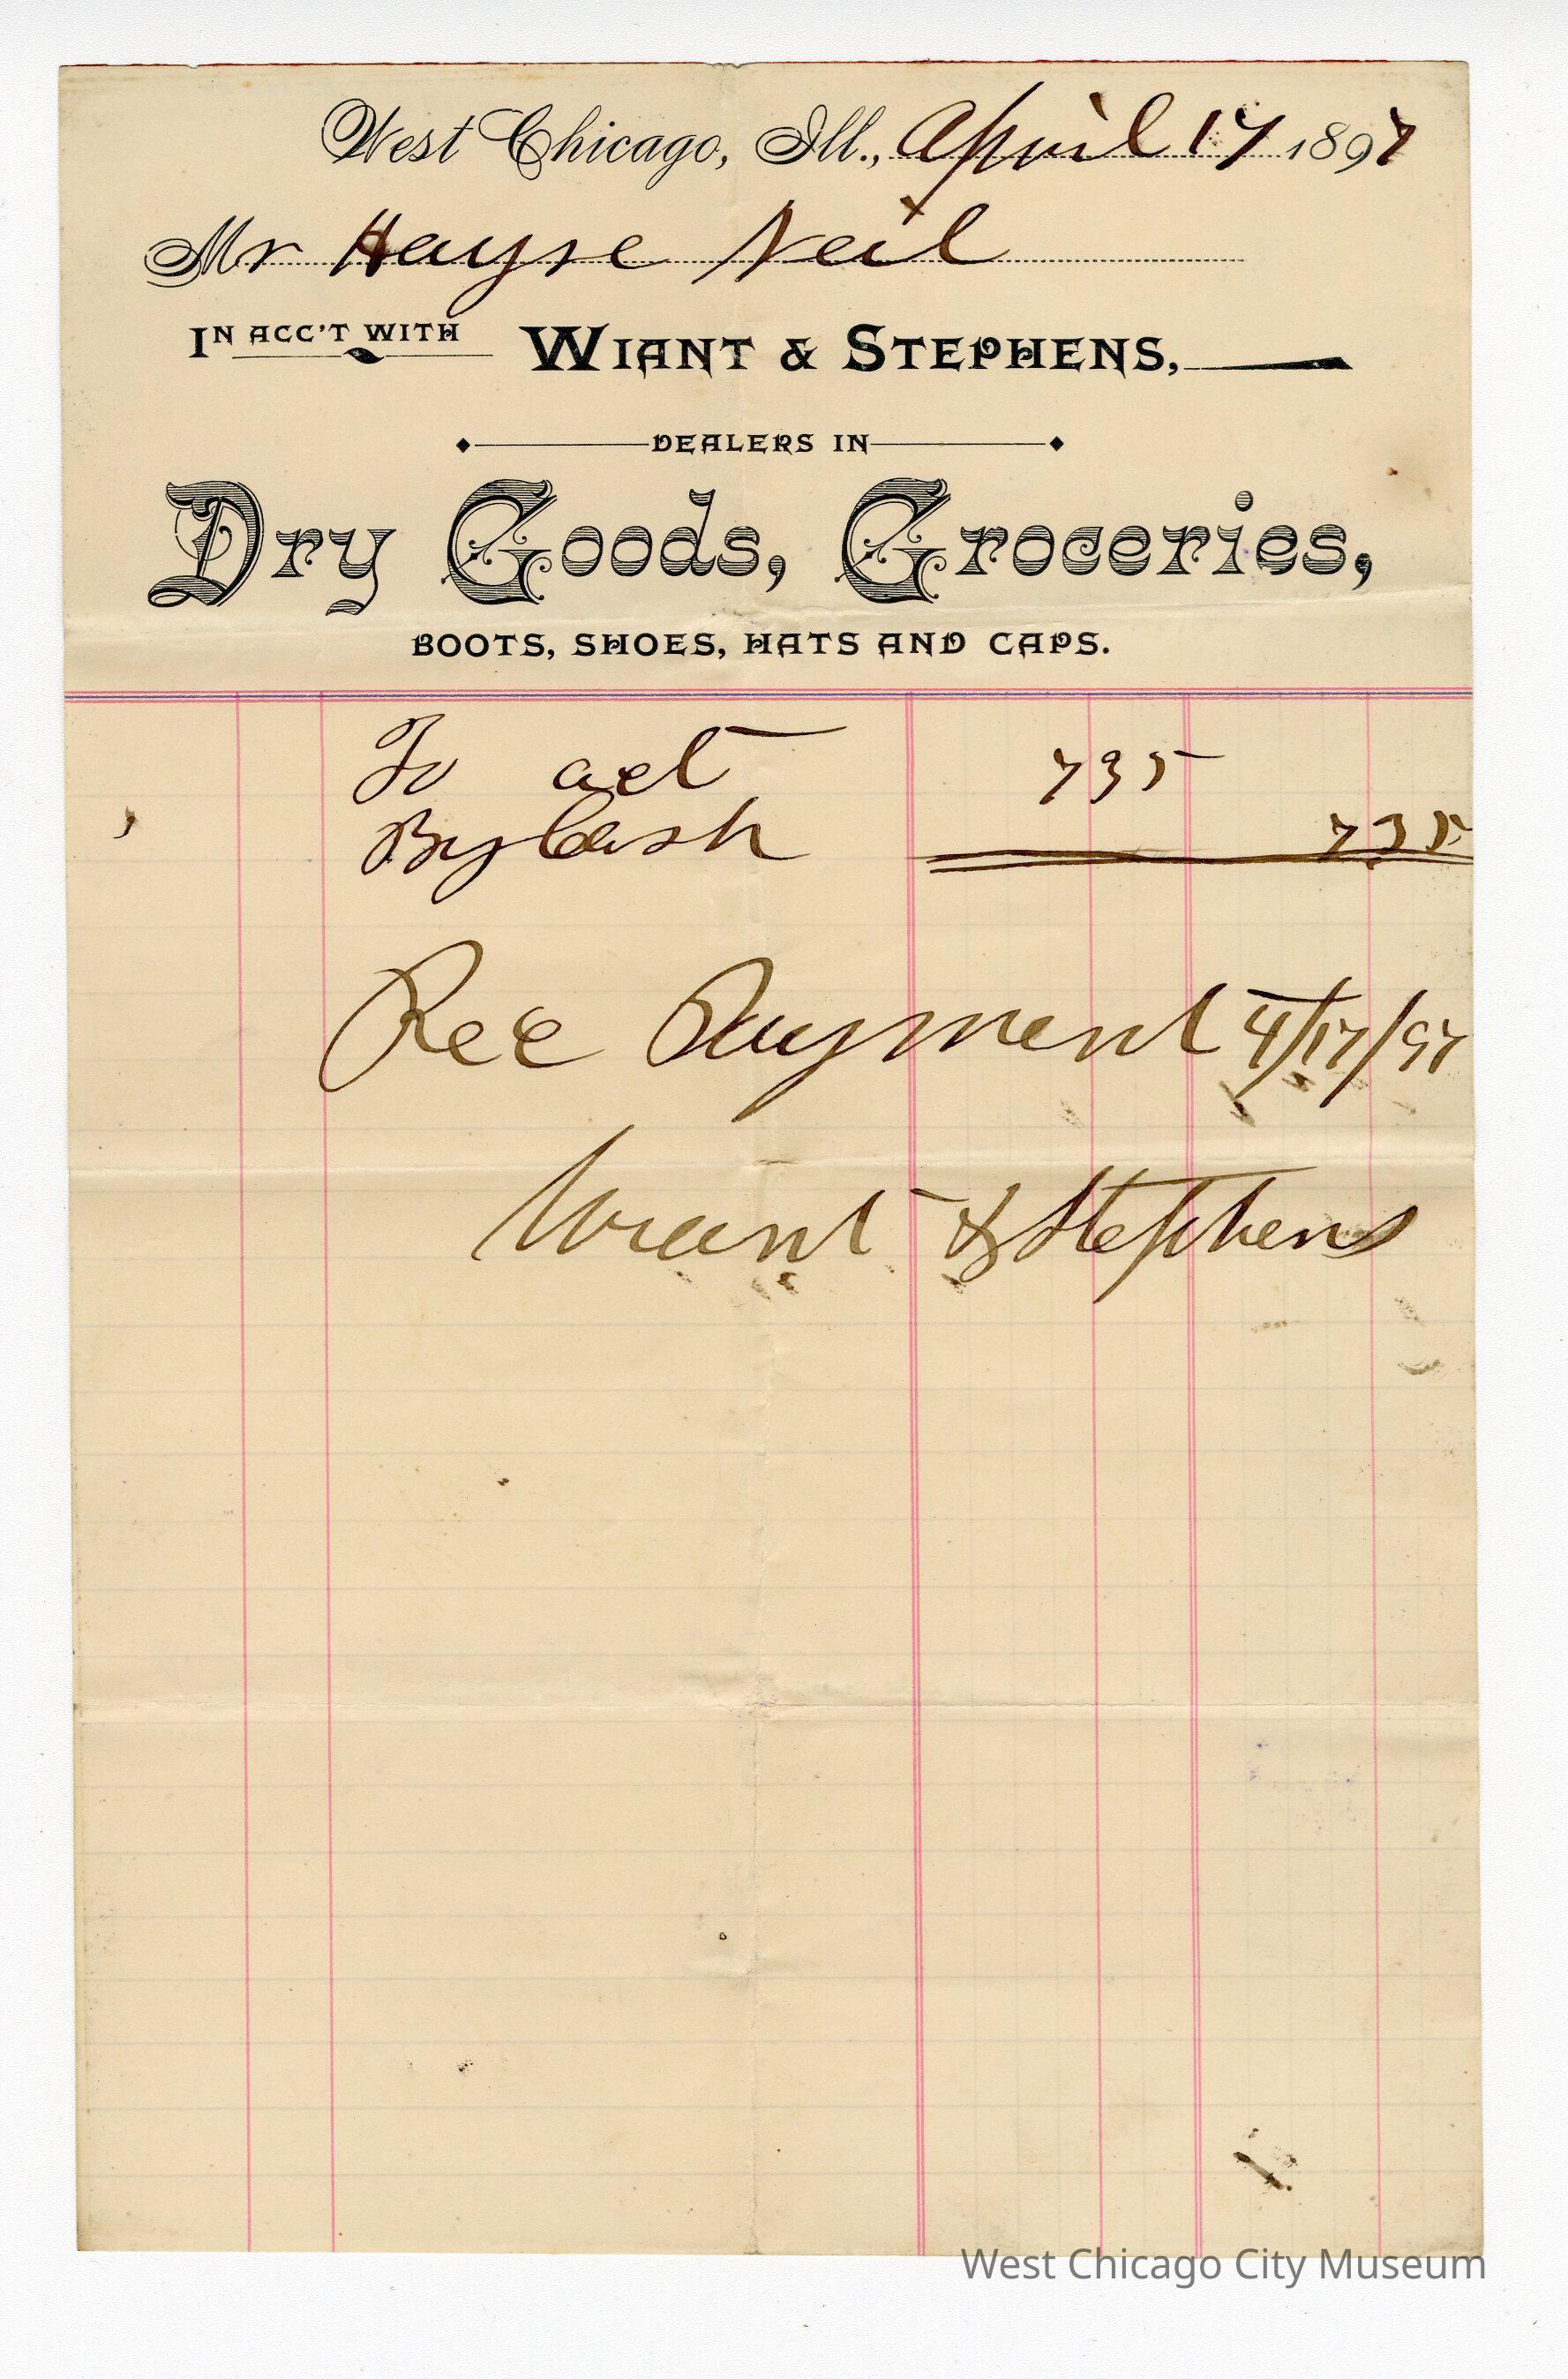 West Chicago, Ill., April 17 1897
Mr Hayse Neil
IN ACC'T WITH WIANT & STEPHENS,
DEALERS IN
Dry Goods, Groceries,
BOOTS, SHOES, HATS AND CAPS.
To act 735
By Cash 735
Rec Payment 4/17/97
Wiant & Stephens
West Chicago City Museum